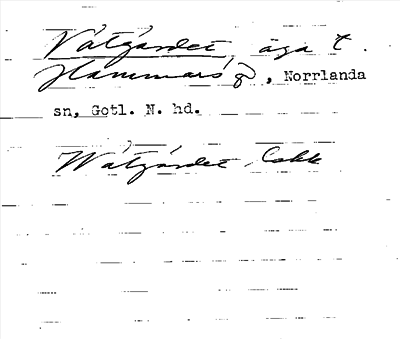 Våtgårdet, äga t.
Hammars g, Norrlanda
sn, Gotl. N. hd.
Wåtgårdet